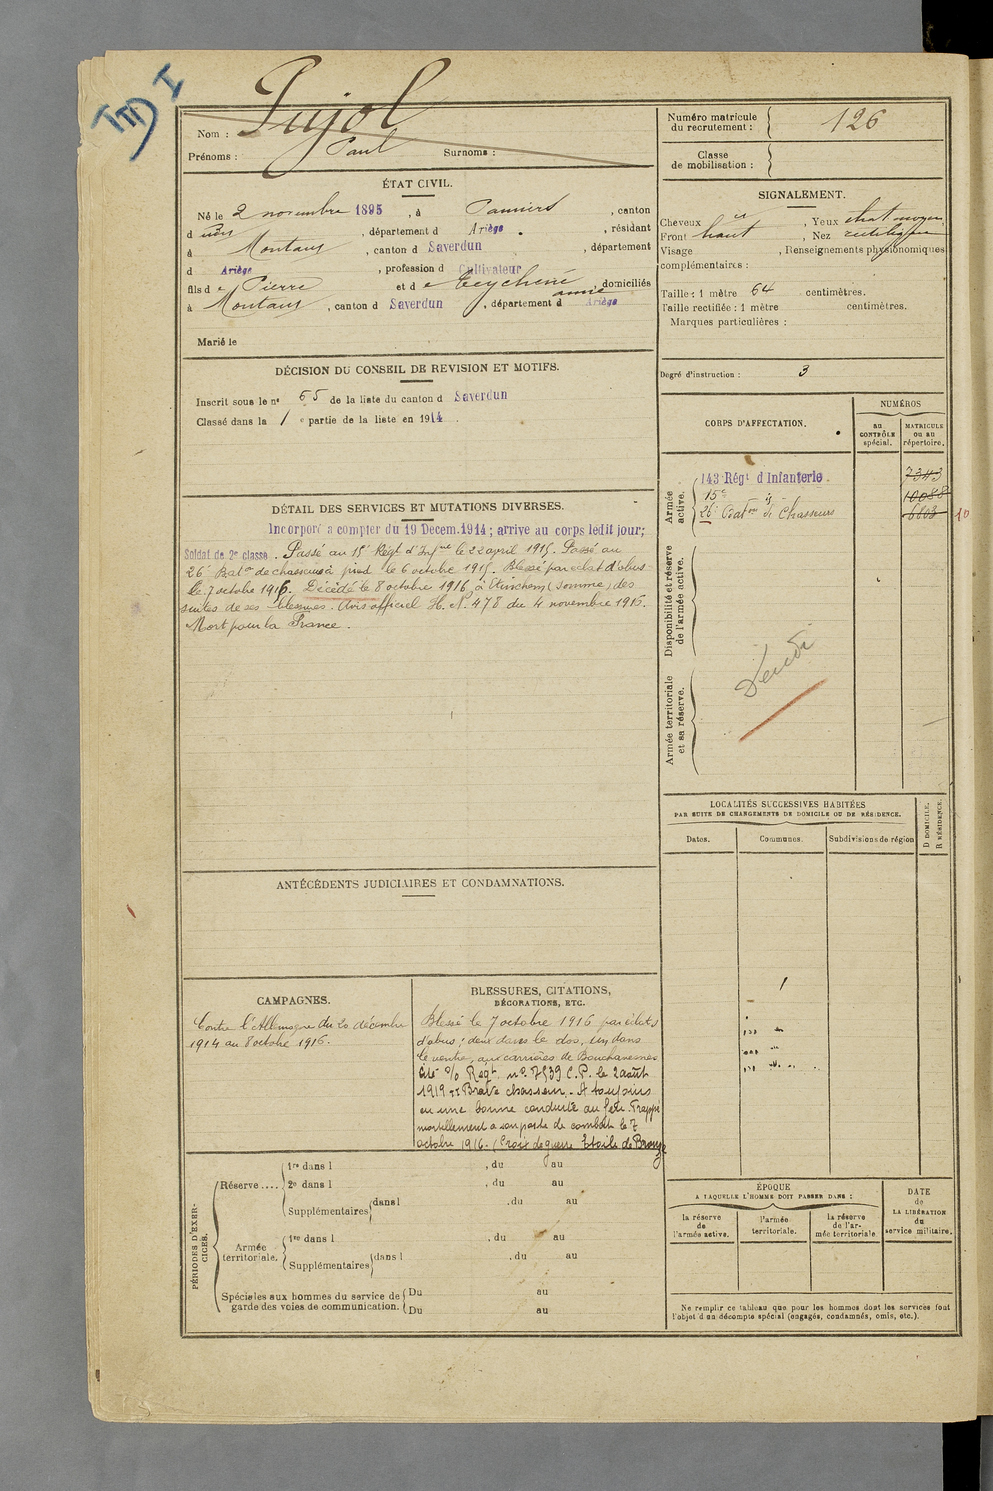 III I
Nom : Pujol
Prénoms : Paul Surnoms :
ÉTAT CIVIL.
Né le 2 novembre 1895, à Pamiers, canton
d dudit, département d Ariège, résidant
à Montaut, canton d Saverdun, département
d Ariège, profession d Cultivateur
fils de Pierre et de Teychené Anne domiciliés
à Montaut, canton d Saverdun, département d Ariège
Marié le
DÉCISION DU CONSEIL DE REVISION ET MOTIFS.
Inscrit sous le n° 65 de la liste du canton d Saverdun
Classé dans la 1 e partie de la liste en 1914.
DÉTAIL DES SERVICES ET MUTATIONS DIVERSES.
Incorporé à compter du 19 Décem.1914; arrivé au corps ledit jour;
Soldat de 2e classe. Passé au 15e Régt d'Infrie le 22 april 1915. Passé au
26e Baton de chasseurs à pied le 6 octobre 1915. Blessé par éclat d'obus
le 7 octobre 1916. Décédé le 8 octobre 1916, à Etinehem (Somme) des
suites de ses blessures. Avis officiel H. N. 478 du 4 novembre 1916.
Mort pour la France.
ANTÉCÉDENTS JUDICIAIRES ET CONDAMNATIONS.
CAMPAGNES.
Contre l'Allemagne du 20 décembre
1914 au 8 octobre 1916.
BLESSURES, CITATIONS,
DÉCORATIONS, ETC.
Blessé le 7 octobre 1916 par éclats
d'obus; deux dans le dos, un dans
le ventre, aux carrières de Bouchavesnes
Cité o/o Régt. n° 7539 C.P. le 2 août
1919 "Brave chasseur. A toujours
eu une bonne conduite au feu. Frappé
mortellement à son poste de combat le 7
octobre 1916. (Croix de guerre Etoile de Bronze
PÉRIODES D'EXERCICES.
Réserve .... 1re dans l , du au
2e dans l , du au
Supplémentaires dans l , du au
Armée territoriale. 1re dans l , du au
Supplémentaires dans l , du au
Spéciales aux hommes du service de Du au
garde des voies de communication. Du au
Numéro matricule
du recrutement : 126
Classe
de mobilisation :
SIGNALEMENT.
Cheveux , Yeux chat moyen
Front haut , Nez rectiligne
Visage , Renseignements physionomiques
complémentaires :
Taille : 1 mètre 64 centimètres.
Taille rectifiée : 1 mètre centimètres.
Marques particulières :
Degré d'instruction : 3
CORPS D'AFFECTATION.
NUMÉROS
au
CONTRÔLE
spécial.
MATRICULE
ou au
répertoire.
Armée
active.
143 Régt d'Infanterie. 7343
15e dº 10088
26e Baton de Chasseurs 6603 10
Disponibilité et réserve
de l'armée active.
Armée territoriale
et sa réserve.
LOCALITÉS SUCCESSIVES HABITÉES
PAR SUITE DE CHANGEMENTS DE DOMICILE OU DE RÉSIDENCE.
Dates. Communes. Subdivisions de région
D DOMICILE.
R RÉSIDENCE.
ÉPOQUE
A LAQUELLE L'HOMME DOIT PASSER DANS :
la réserve
de
l'armée active.
l'armée
territoriale.
la réserve
de l'armée territoriale
DATE
de
LA LIBÉRATION
du
service militaire.
Ne remplir ce tableau que pour les hommes dont les services font
l'objet d'un décompte spécial (engagés, condamnés, omis, etc.).